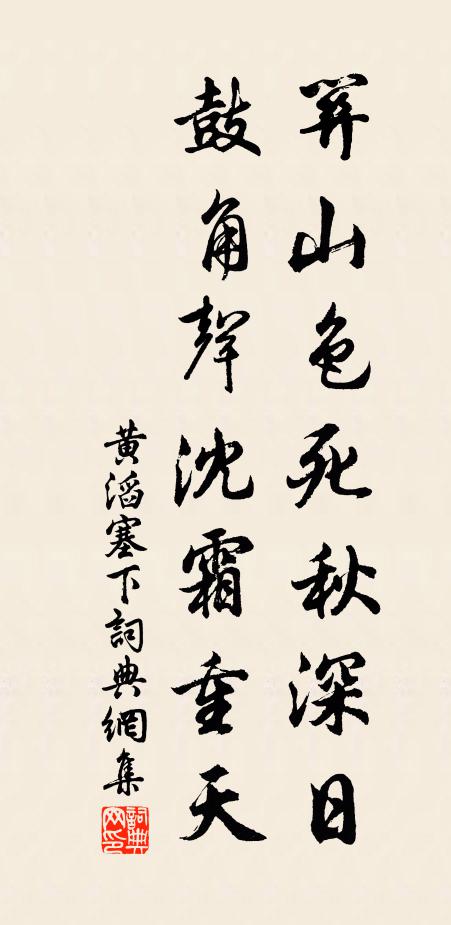 關山色死秋深日
鼓角聲沈霜重天
黃滔塞下詞典網集
詞典網印